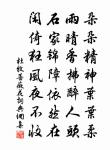 朵朵精神葉葉柔
雨晴香拂醉人頭
石家錦障依然在
閑倚狂風夜不收
杜牧薔薇花詩詞典網書